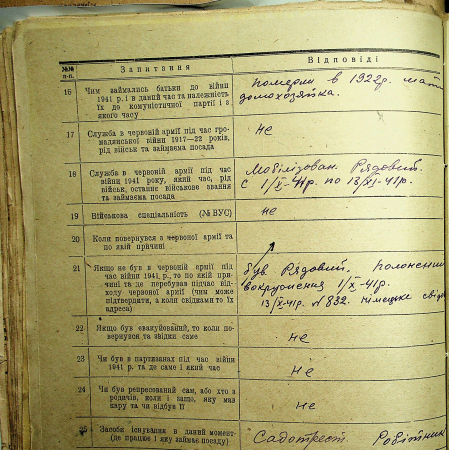 №№ п.п.
Запитання
Відповіді
16 Чим займались батьки до війни
1941 р. і в даний час та належність
їх до комуністичної партії і з
якого часу
Померли в 1922р. мати
домохозяйка.
17 Служба в червоній армії під час гро-
мадянської війни 1917—22 років,
рід військ та займаєма посада
не
18 Служба в червоній армії під час
війни 1941 року, який час, рід
військ, останнє військове звання
та займаєма посада
Мобілізован. Рядовий.
с 1/X-41р. по 13/XI-41р.
19 Військова спеціальність (№ ВУС)
не
20 Коли повернувся з червоної армії та
по якій причині
21 Якщо не був в червоній армії під
час війни 1941 р., то по якій при-
чині та де перебував підчас від-
ходу червоної армії (чим може
підтвердити, а коли свідками то їх
адреса)
був Рядовий. Полонений
вокружения 1/X-41р.
13/XI-41р. №832. німецьке
22 Якщо був евакуйований, то коли по-
вернувся та звідки саме
не
23 Чи був в партизанах під час війни
1941 р. та де саме і який час
не
24 Чи був репресований сам, або хто з
родичів, коли і защо, яку мав
кару та чи відбув її
не
25 Засоби існування в даний момент
(де працює і яку займає посаду)
Садотрест. Робітник